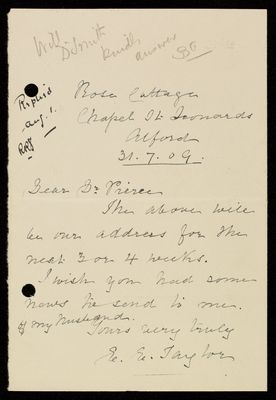 Will
Dr Smith
kindly
answer
Replied
Aug. 1.
Rose Cottage
Chapel St Leonards
Alford
31.7.09.
Dear Dr Pierce
The above will
be our address for the
next 3 or 4 weeks.
I wish you had some
news to send to me
of my husband.
Yours very truly
E. E. Taylor